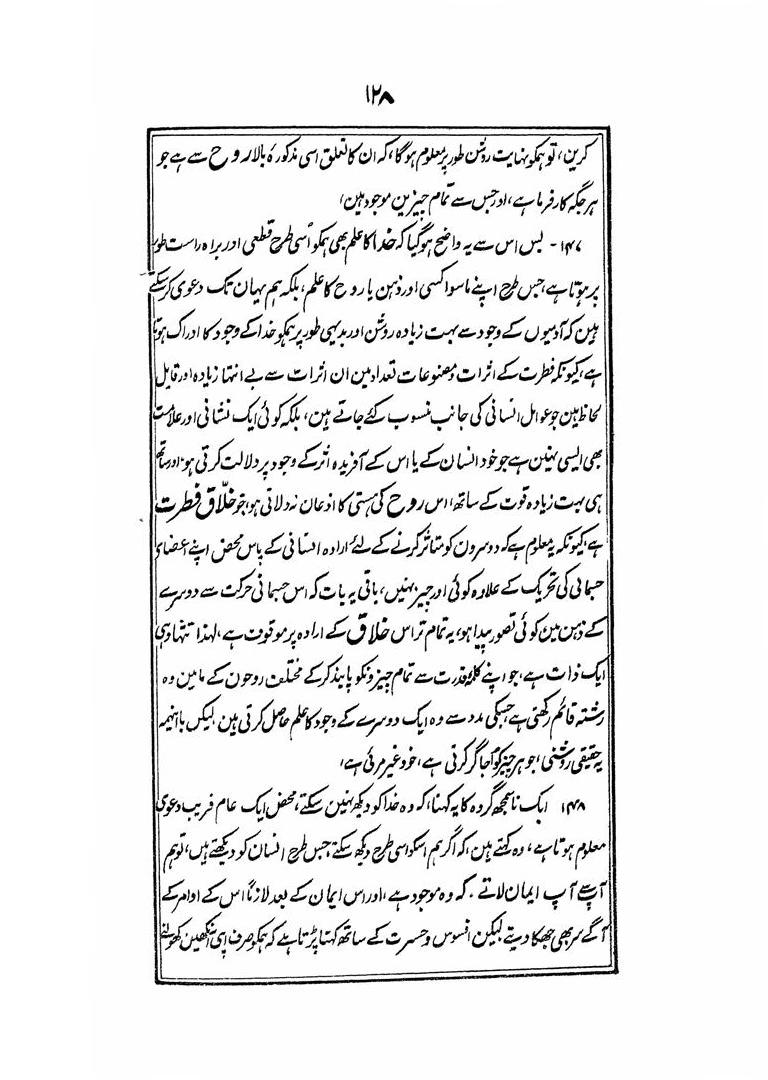 ۱۲۸
کرین، تو ہمکو نہایت روشن طور پر معلوم ہوگا، کہ ان کا تعلق اسی مذکورہ بالا روح سے ہے جو
ہر جگہ کار فرما ہے، اور جس سے تمام چیزین موجود ہین،
۱۴۷- پس اس سے یہ واضح ہوگیا کہ خدا کا علم بھی ہمکو اُسی طرح قطعی اور براہ راست طور
پر ہوتا ہے، جس طرح اپنے ماسوا کسی اور ذہن یا روح کا علم، بلکہ ہم یہان تک دعوی کرسکتے
ہین کہ آدمیوں کے وجود سے بہت زیادہ روشن اور بدیہی طور پر ہمکو خدا کے وجود کا ادراک ہوتا
ہے، کیونکہ فطرت کے اثرات و مصنوعات تعداد مین ان اثرات سے بے انتہا زیادہ اور قابل
لحاظ ہین جو عوامل انسانی کی جانب منسوب کئے جاتے ہین، بلکہ کوئی ایک نشانی اور علامت
بھی ایسی نہین ہے جو خود انسان کے یا اس کے آفریدہ اثر کے وجود پر دلالت کرتی ہو، اور ساتھ
ہی بہت زیادہ قوت کے ساتھ، اس روح کی ہستی کا اذعان نہ دلاتی ہو، جو خلّاق فطرت
ہے، کیونکہ یہ معلوم ہے کہ دوسرون کو متاثر کرنے کے لئے ارادہ انسانی کے پاس محض اپنے اعضای
جسمانی کی تحریک کے علاوہ کوئی اور چیز نہیں، باقی یہ بات کہ اس جسمانی حرکت سے دوسرے
کے ذہن مین کوئی تصور پیدا ہو، یہ تمام تر اس خلاق کے ارادہ پر موقوف ہے، لہذا تنہا وہی
ایک ذات ہے، جو اپنے کلمۂ قدرت سے تمام چیزونکو پابند کرکے مختلف روحون کے مابین وہ
رشتہ قائم رکھتی ہے جسکی مدد سے وہ ایک دوسرے کے وجود کا علم حاصل کرتی ہین لیکن باانہمہ
یہ حقیقی روشنی، جو ہر چیز کو اُجاگر کرتی ہے، خود غیر مرئی ہے،
۱۴۸ ایک ناسمجھ گروہ کا یہ کہنا، کہ وہ خدا کو دیکھ نہین سکتے، محض ایک عام فریب دعوی
معلوم ہوتا ہے، وہ کہتے ہین، کہ اگر ہم اسکو اسی طرح دیکھ سکتے، جس طرح انسان کو دیکھتے ہیں، تو ہم
آپسے آپ ایمان لاتے، کہ وہ موجود ہے، اور اس ایمان کے بعد لازماً اس کے اوامر کے
آگے سر بھی جھکا دیتے لیکن افسوس و حسرت کے ساتھ کہنا پڑتا ہے کہ ہمکو صرف اپنی آنکھین کھولنے